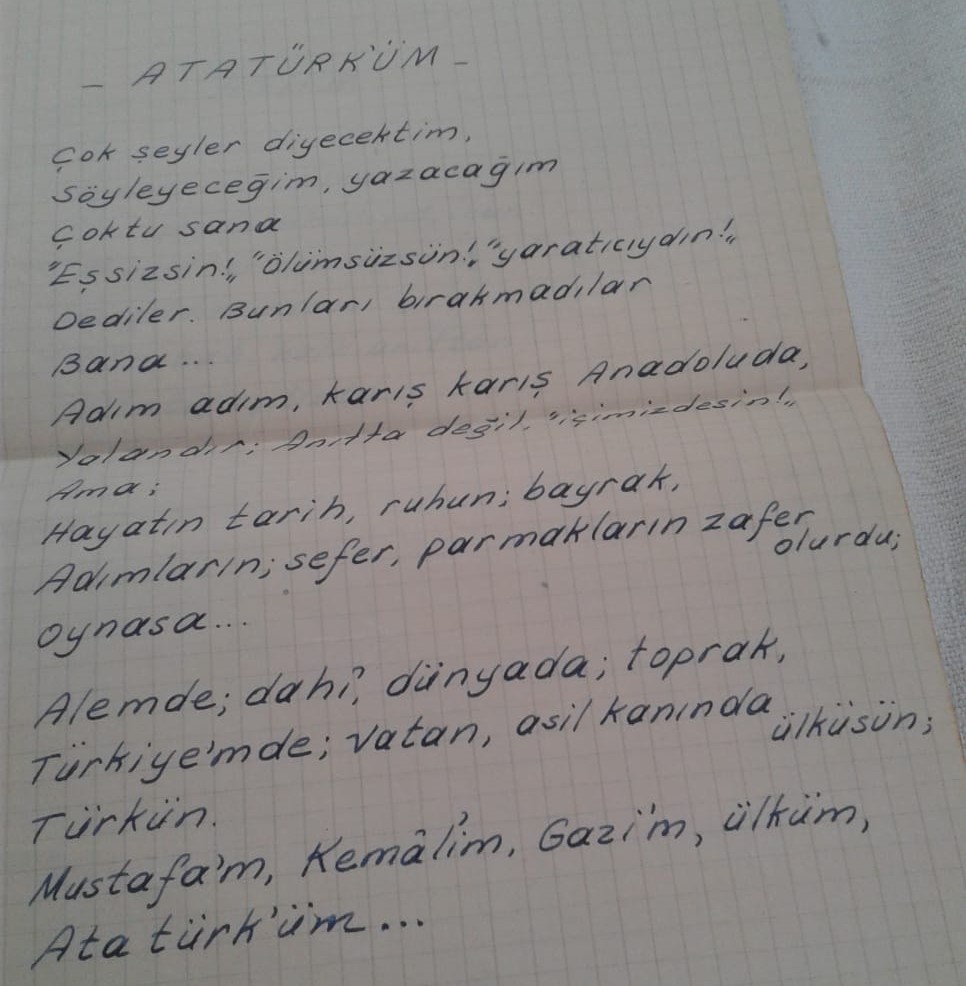 - ATATÜRK'ÜM -
Çok şeyler diyecektim,
Söyleyeceğim, yazacağım
Çoktu sana
"Eşsizsin!„ "Ölümsüzsün!„ "yaratıcıydın!„
Dediler. Bunları bırakmadılar
Bana...
Adım adım, karış karış Anadoluda,
Yalandır; Anıtta değil, "içimizdesin!„
Ama;
Hayatın tarih, ruhun; bayrak,
Adımların; sefer, parmakların zafer
olurdu;
Oynasa...
Alemde; dahî, dünyada; toprak,
Türkiye'mde; vatan, asil kanında
ülküsün;
Türkün.
Mustafa'm, Kemâl'im, Gazi'm, ülküm,
Ata türk'üm...